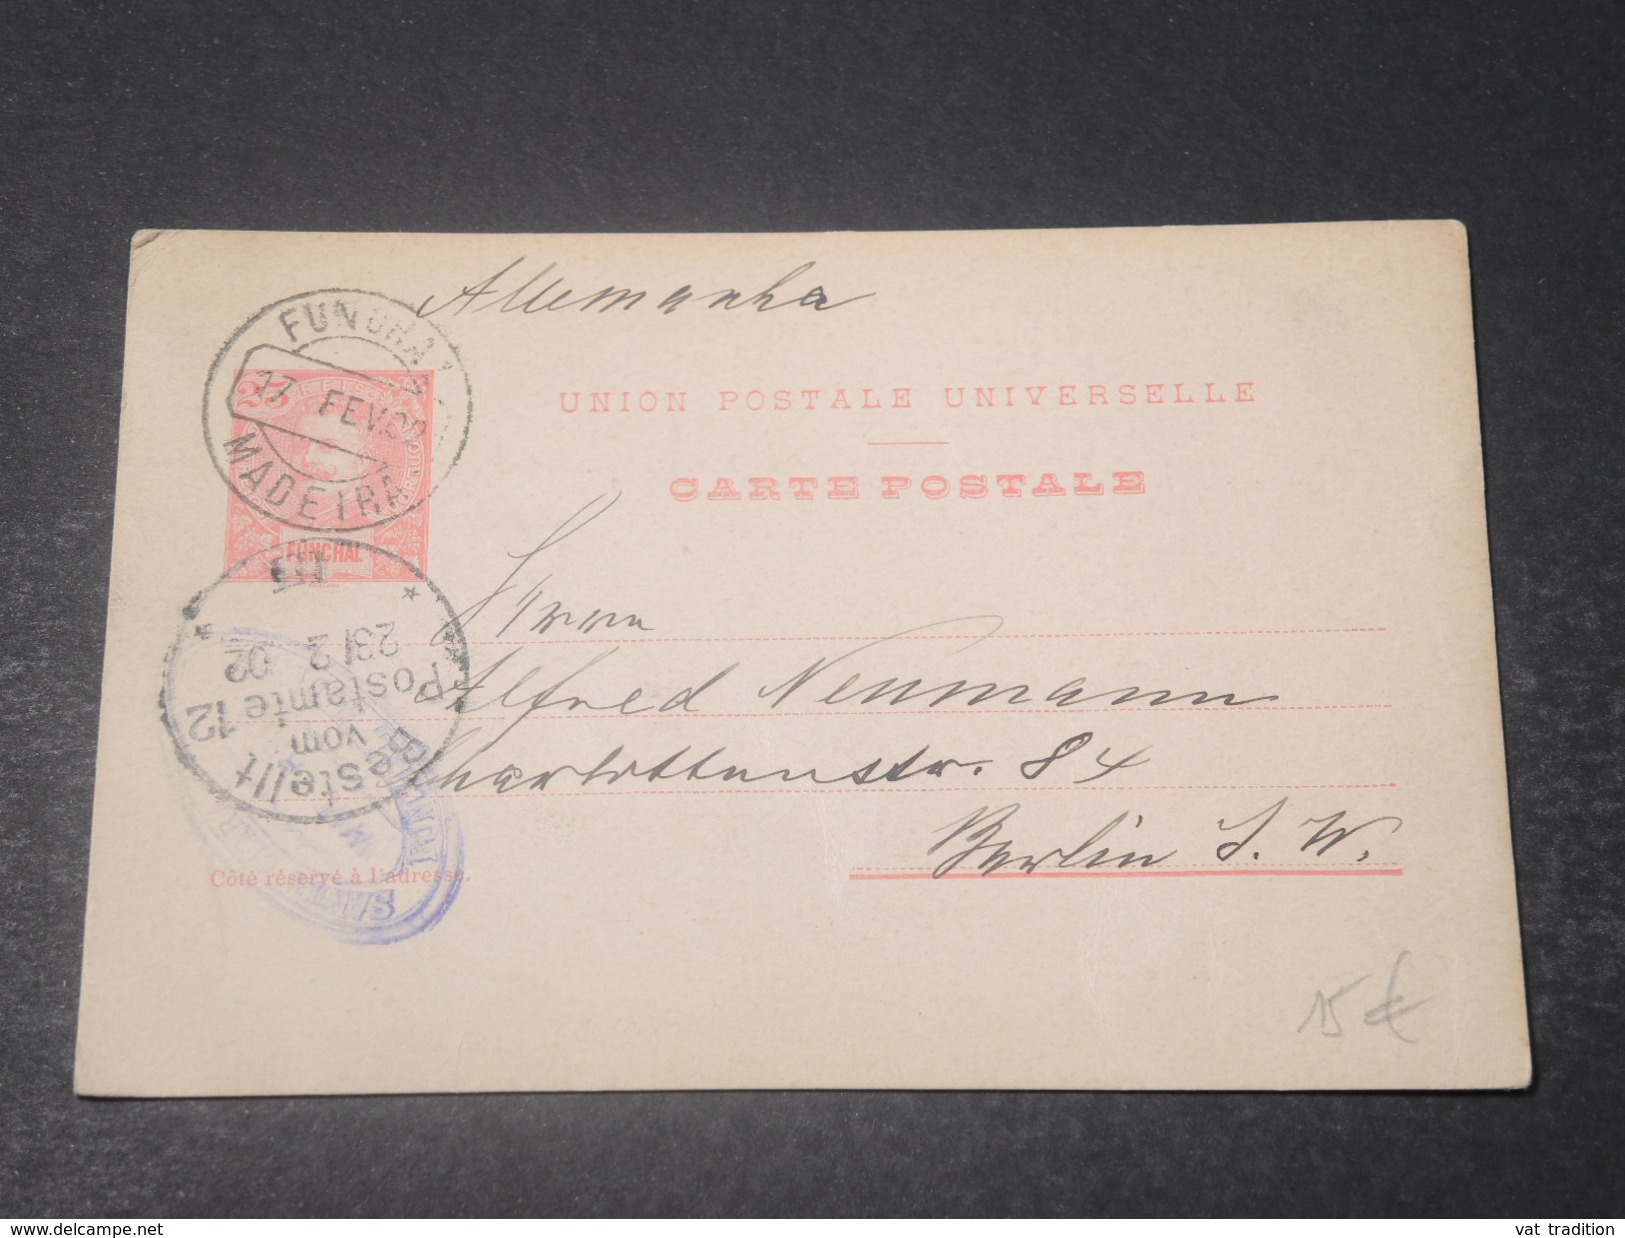 Allemanha
FUNCHAL
25 REIS
17 FEV.02
MADEIRA
FUNCHAL
UNION POSTALE UNIVERSELLE
CARTE POSTALE
Herrn
Alfred Neumann
Charlottenstr. 84
Berlin S. W.
Bestellt
vom
Postamte 12
23/2 02
FUNC
Côté réservé à l'adresse.
15 €
delcampe.net
vat tradition